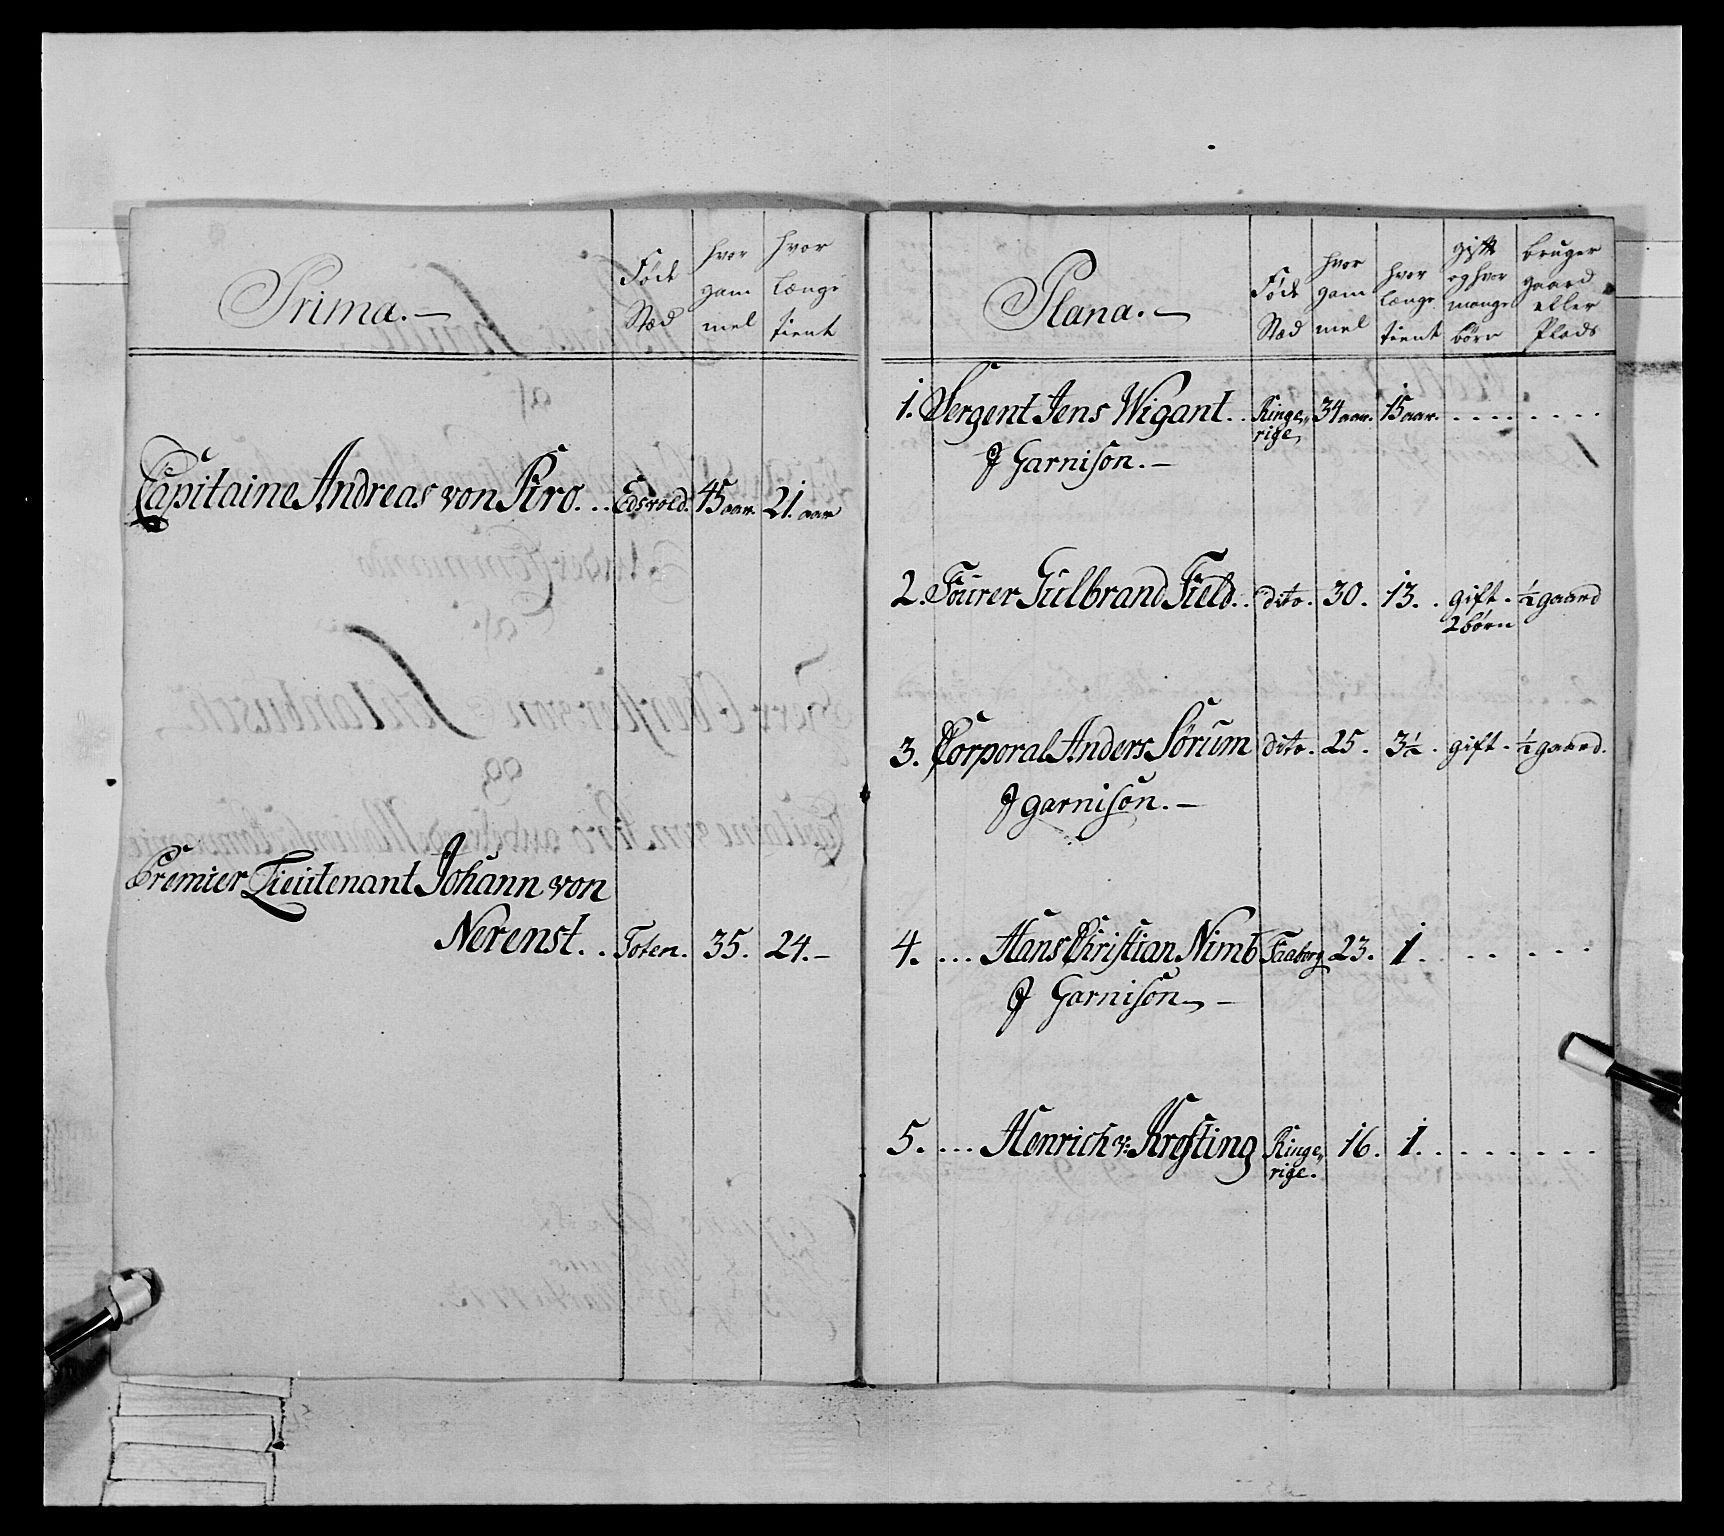 Prima.
Føde Stæd
hvor gam mel
hvor længe tient
Capitaine Andreas von Kro... Edsvold. 45 aar. 21. aar
Premier Lieutenant Johann von
Nerenst.. Toten. 35. 24.-
Plana.
Føde Stæd
hvor gam mel
hvor længe tient
gift og hvor mange børn
bruger gaard eller Plads
1. Sergent Jens Wigant.. Ringe„ 34 aar. 15 aar. . . . . . . . .
rige
J Garnison.-
2. Fourer Gulbrand Field.. dito. 30. 13. . gift. ½ gaard
2 børn
3. Corporal Anders Sørum dito. 25. 3½. gift. ½ gaard.
J garnison.-
4. ... Hans Christian Nimb Faaborg 23. 1. . . . . .
J Garnison -
5. .... Henrich v: Kresting Ringe„ 16. 1. . . . . . . . .
rige.